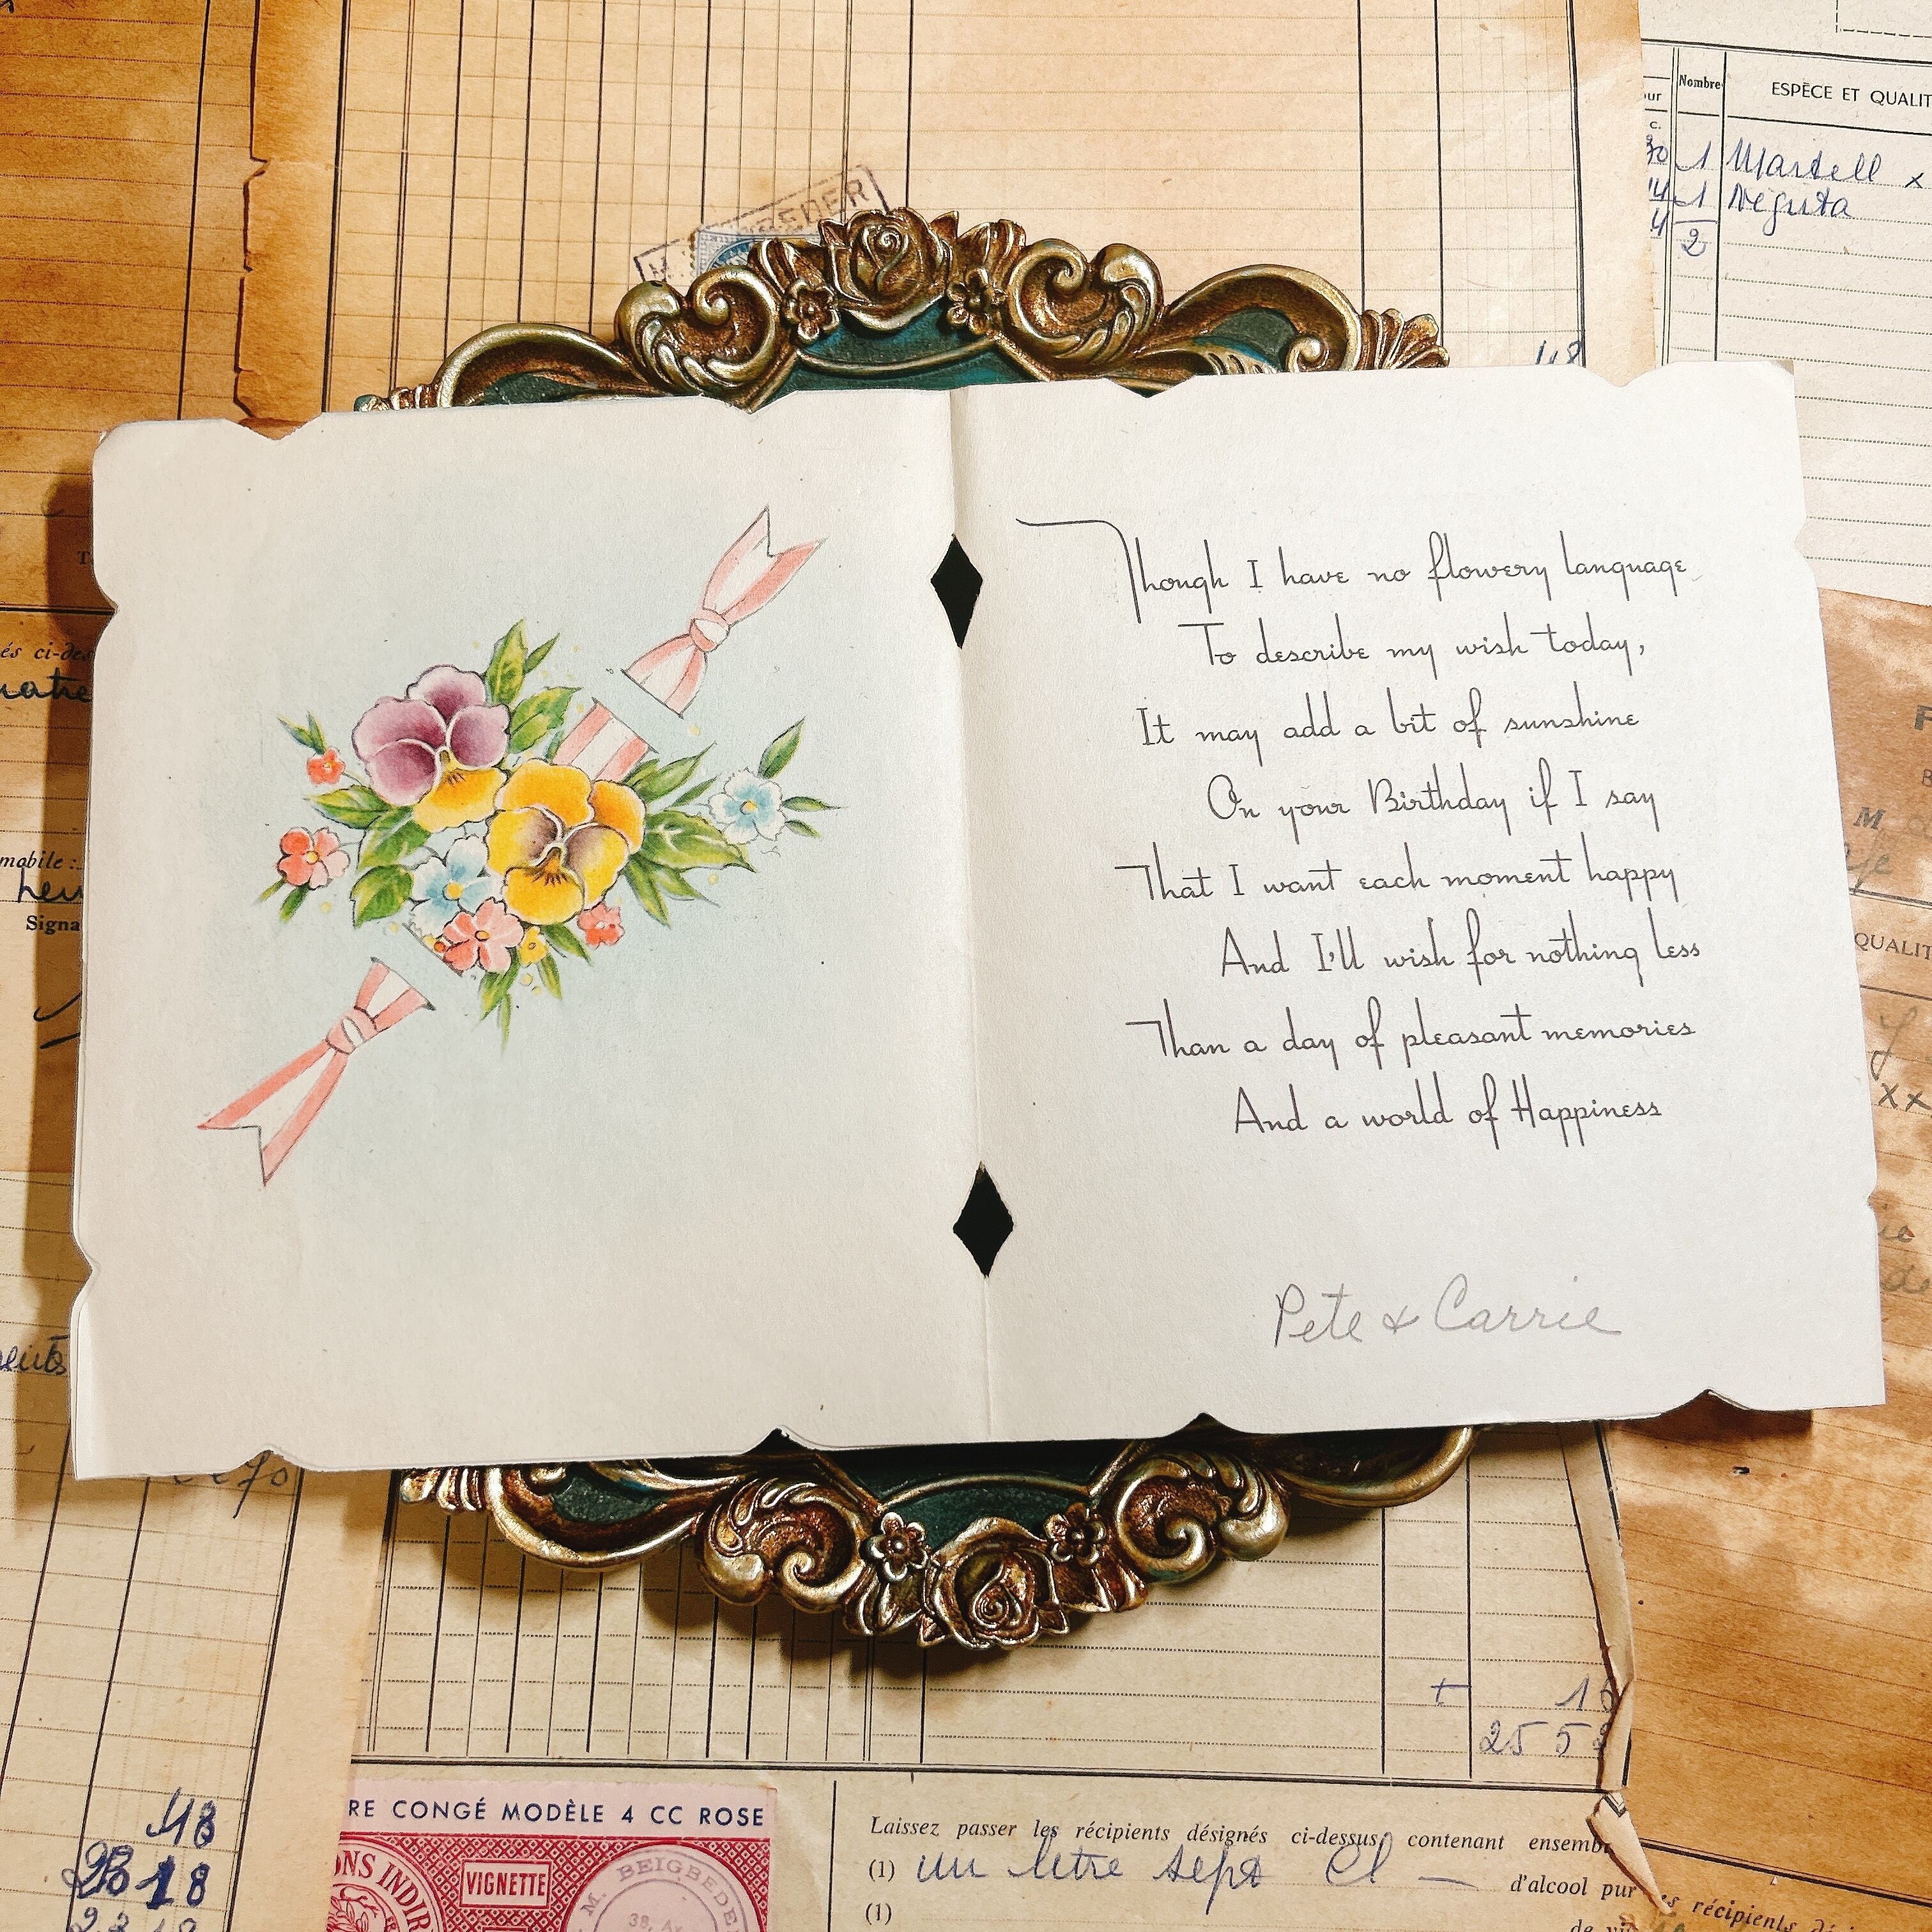 Nombre
ESPÈCE ET QUALIT
1 Martell x
1 Négrita
2
Though I have no flowery language
To describe my wish today,
It may add a bit of sunshine
On your Birthday if I say
That I want each moment happy
And I'll wish for nothing less
Than a day of pleasant memories
And a world of Happiness
Pete & Carrie
és ci-des
mobile :
Signa
QUALIT
xx
+ 1
25 5
48
18
RE CONGÉ MODÈLE 4 CC ROSE
ONS INDIR
VIGNETTE
M. BEIGBEDE
Laissez passer les récipients désignés ci-dessus, contenant ensemb
(1) un litre sept cl —
d'alcool pur
(1)
de vi
es récipients dé